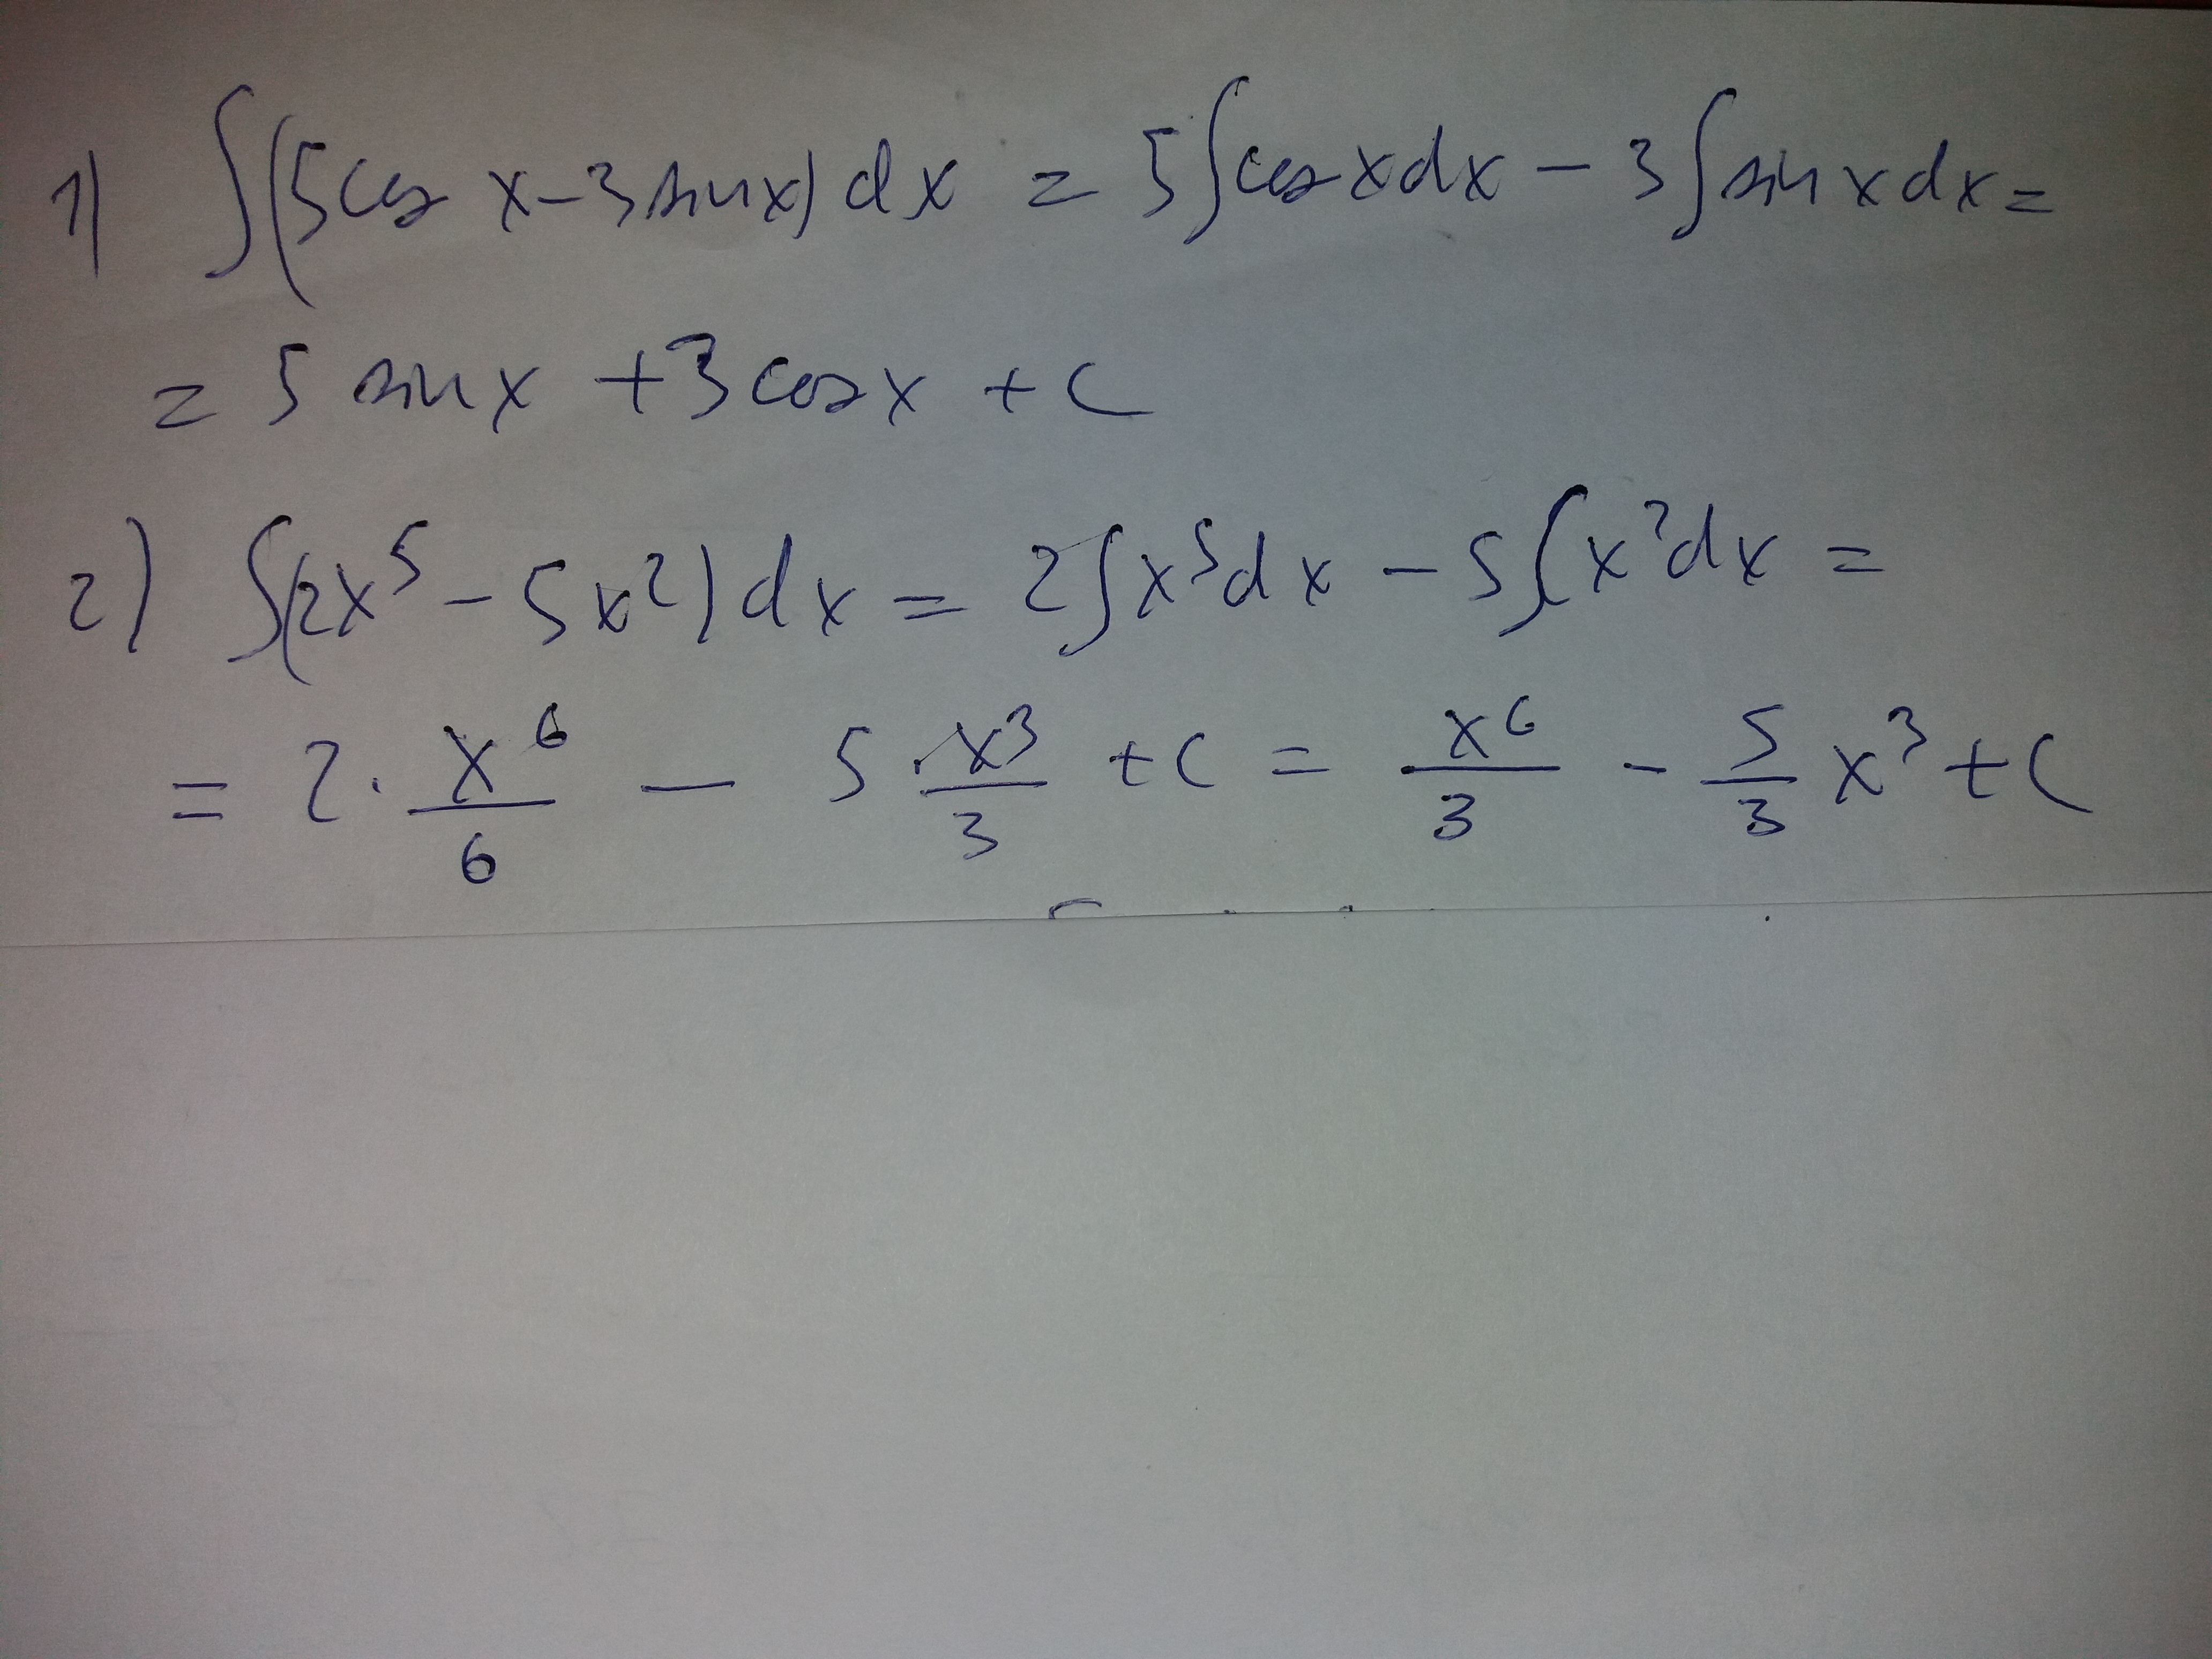 1) ∫(5cos x-3sinx)dx = 5∫cosxdx - 3∫sinxdx=
= 5 sinx +3cosx + C
2) ∫(2x⁵ - 5x²)dx = 2∫x⁵dx - 5∫x²dx =
= 2 · x⁶/6 - 5 · x³/3 + C = x⁶/3 - 5/3 x³ + C